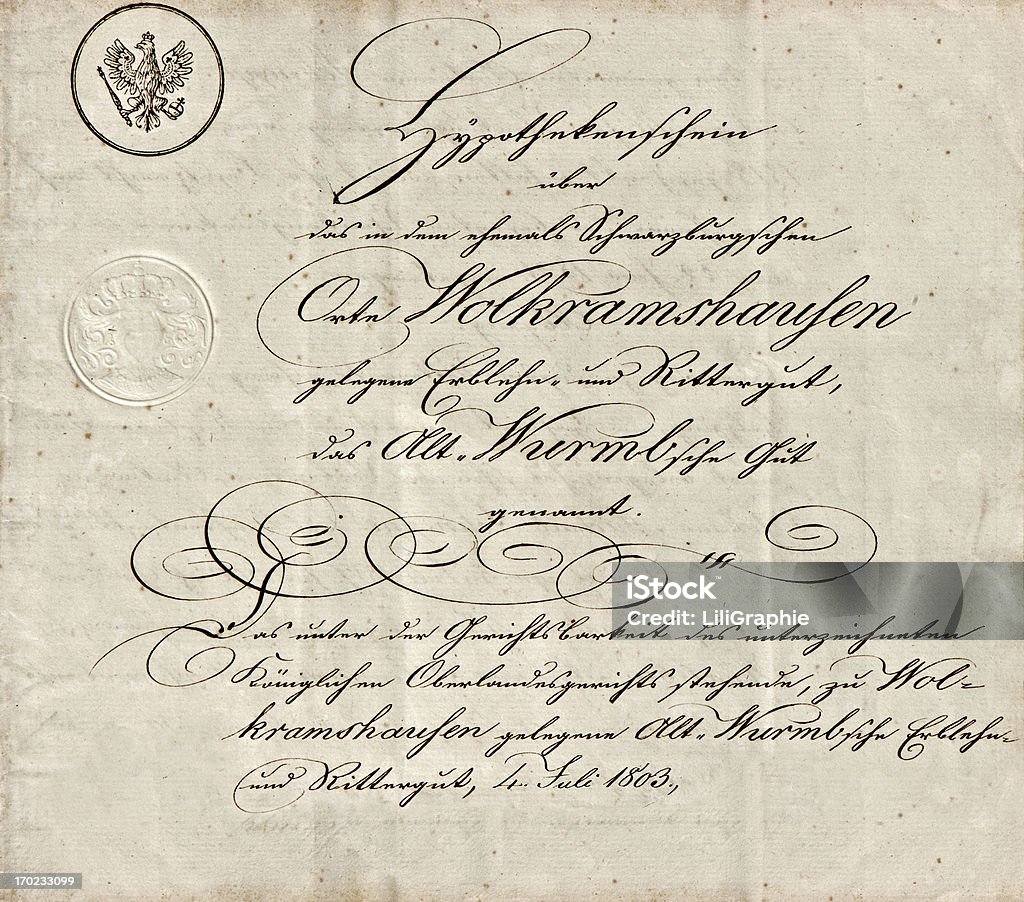 Hypothekenschein
über
das in dem ehemals Schwarzburgschen
Orte Wolkramshausen
gelegene Erblehn- und Rittergut,
das Alt-Wurmbsche Gut
genannt.
iStock
Credit: LiliGraphie
Das unter der Gerichtsbarkeit des unterzeichneten
Königlichen Oberlandesgerichts stehende, zu Wol-
kramshausen gelegene Alt-Wurmbsche Erblehn-
und Rittergut, 4. Juli 1803.,
170233099